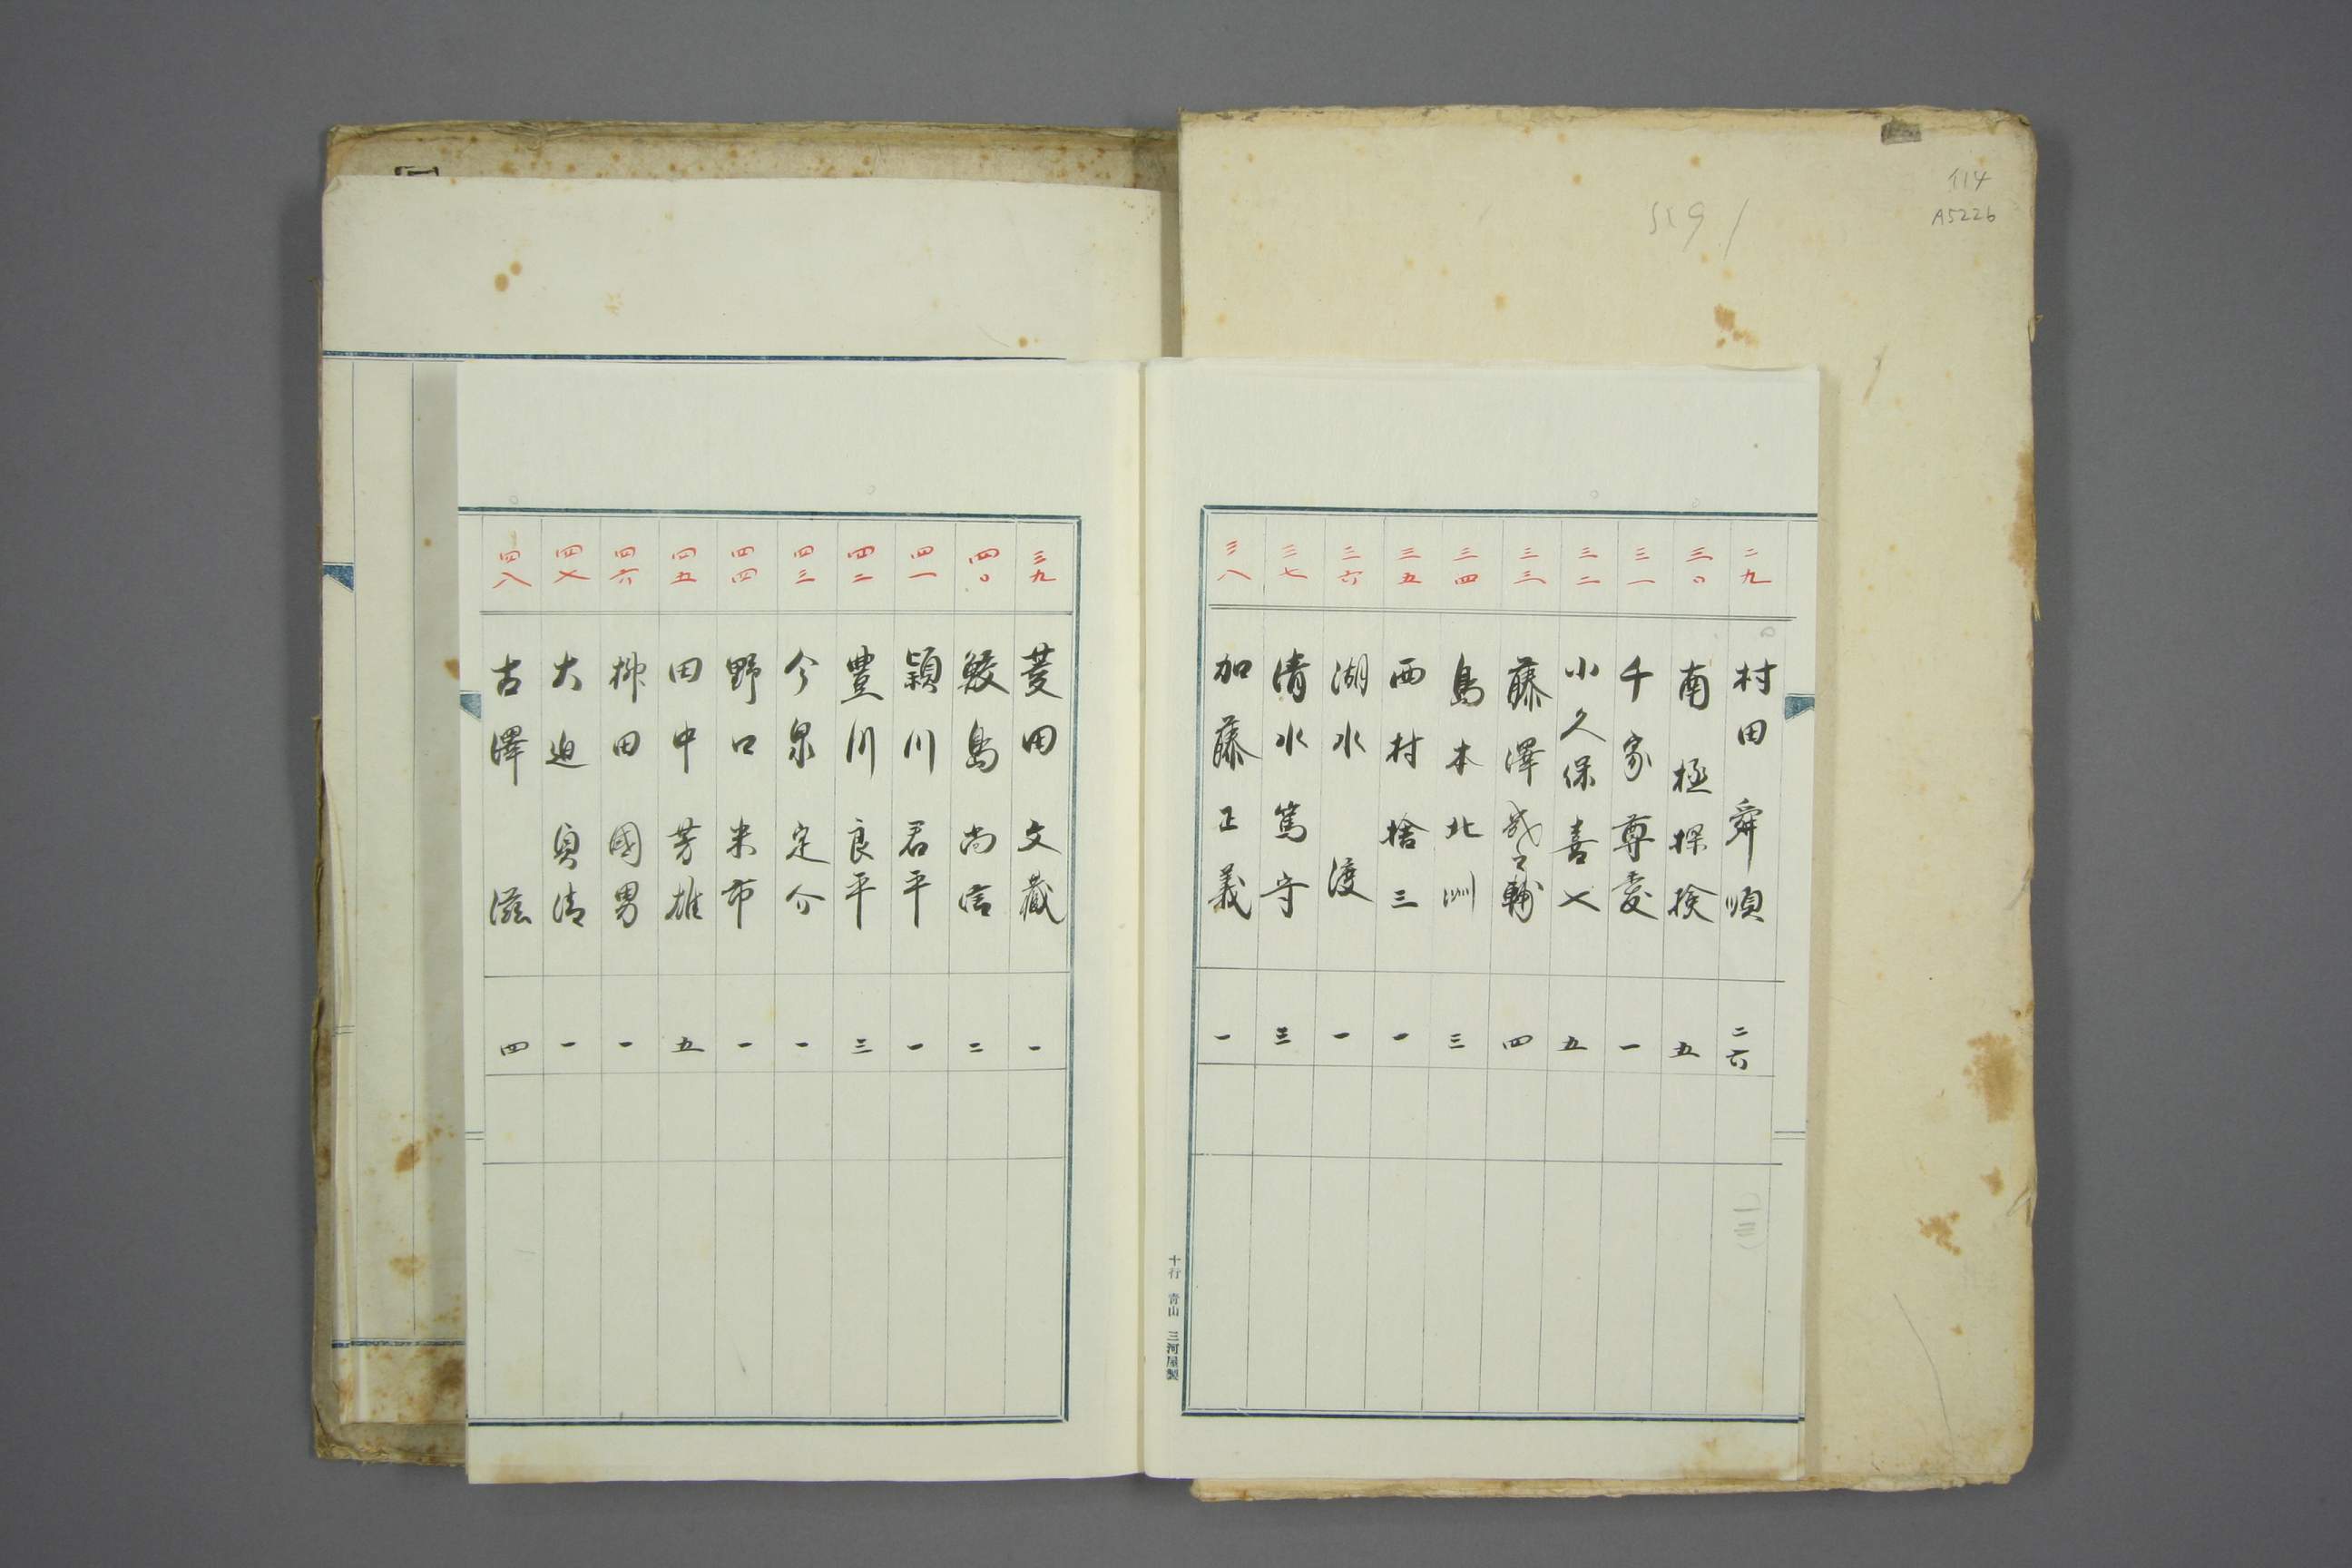 114
A5226
二九 村田舜順 二六
三〇 南極探検 五
三一 千家尊愛 一
三二 小久保喜七 五
三三 藤澤幾之輔 四
三四 島本北洲 三
三五 西村捨三 一
三六 湖水渡 一
三七 清水篤守 三
三八 加藤正義 一
十行 青山 三河屋製
三九 菱田文藏 一
四〇 鮫島尚信 二
四一 潁川君平 一
四二 豊川良平 三
四三 今泉定介 一
四四 野口米市 一
四五 田中芳雄 五
四六 柳田國男 一
四七 大迫貞清 一
四八 古澤滋 四